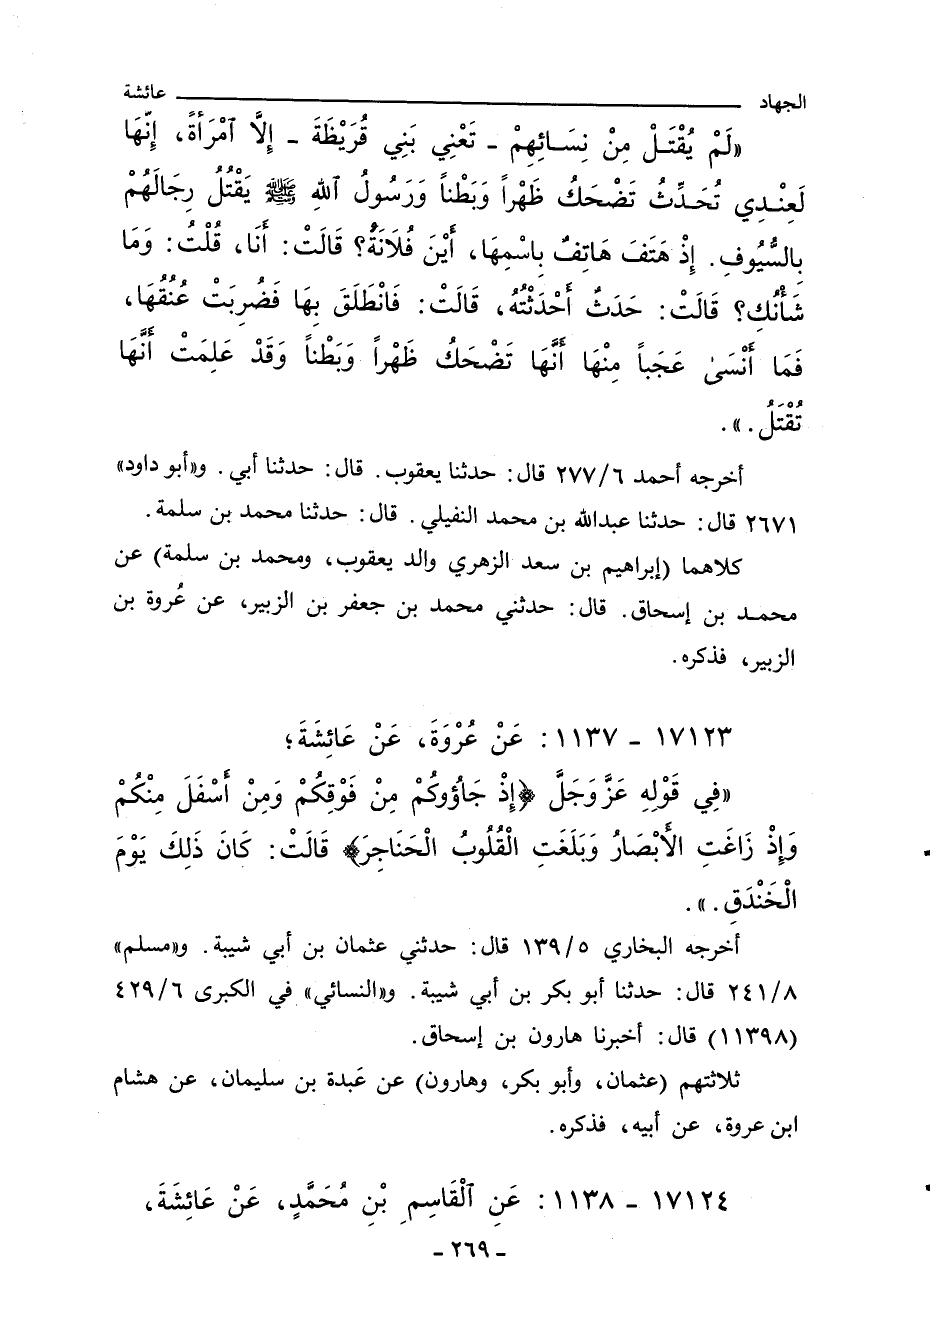 الجهاد ـــــــــــــــــ عائشة
«لَمْ يُقْتَلْ مِنْ نِسَائِهِمْ - تَعْنِي بَنِي قُرَيْظَةَ - إِلَّا ٱمْرَأَةٌ، إِنَّهَا
لَعِنْدِي تُحَدِّثُ تَضْحَكُ ظَهْراً وَبَطْناً وَرَسُولُ ٱللهِ ﷺ يَقْتُلُ رِجَالَهُمْ
بِالسُّيُوفِ. إِذْ هَتَفَ هَاتِفٌ بِاسْمِهَا، أَيْنَ فُلَانَةُ؟ قَالَتْ: أَنَا، قُلْتُ: وَمَا
شَأْنُكِ؟ قَالَتْ: حَدَثٌ أَحْدَثْتُهُ، قَالَتْ: فَانْطَلَقَ بِهَا فَضُرِبَتْ عُنُقُهَا،
فَمَا أَنْسَىٰ عَجَباً مِنْهَا أَنَّهَا تَضْحَكُ ظَهْراً وَبَطْناً وَقَدْ عَلِمَتْ أَنَّهَا
تُقْتَلُ.».
أخرجه أحمد ٢٧٧/٦ قال: حدثنا يعقوب. قال: حدثنا أبي. و«أبو داود»
٢٦٧١ قال: حدثنا عبدالله بن محمد النفيلي. قال: حدثنا محمد بن سلمة.
كلاهما (إبراهيم بن سعد الزهري والد يعقوب، ومحمد بن سلمة) عن
محمد بن إسحاق. قال: حدثني محمد بن جعفر بن الزبير، عن عُروة بن
الزبير، فذكره.
١٧١٢٣ - ١١٣٧: عَنْ عُرْوَةَ، عَنْ عَائِشَةَ؛
«فِي قَوْلِهِ عَزَّ وَجَلَّ ﴿إِذْ جَاؤُوكُمْ مِنْ فَوْقِكُمْ وَمِنْ أَسْفَلَ مِنْكُمْ
وَإِذْ زَاغَتِ الأَبْصَارُ وَبَلَغَتِ الْقُلُوبُ الْحَنَاجِرَ﴾ قَالَتْ: كَانَ ذَلِكَ يَوْمَ
الْخَنْدَقِ.».
أخرجه البخاري ١٣٩/٥ قال: حدثني عثمان بن أبي شيبة. و«مسلم»
٢٤١/٨ قال: حدثنا أبو بكر بن أبي شيبة. و«النسائي» في الكبرى ٤٢٩/٦
(١١٣٩٨) قال: أخبرنا هارون بن إسحاق.
ثلاثتهم (عثمان، وأبو بكر، وهارون) عن عَبدة بن سليمان، عن هشام
ابن عروة، عن أبيه، فذكره.
١٧١٢٤ - ١١٣٨: عَنِ ٱلْقَاسِمِ بْنِ مُحَمَّدٍ، عَنْ عَائِشَةَ،
- ٢٦٩ -